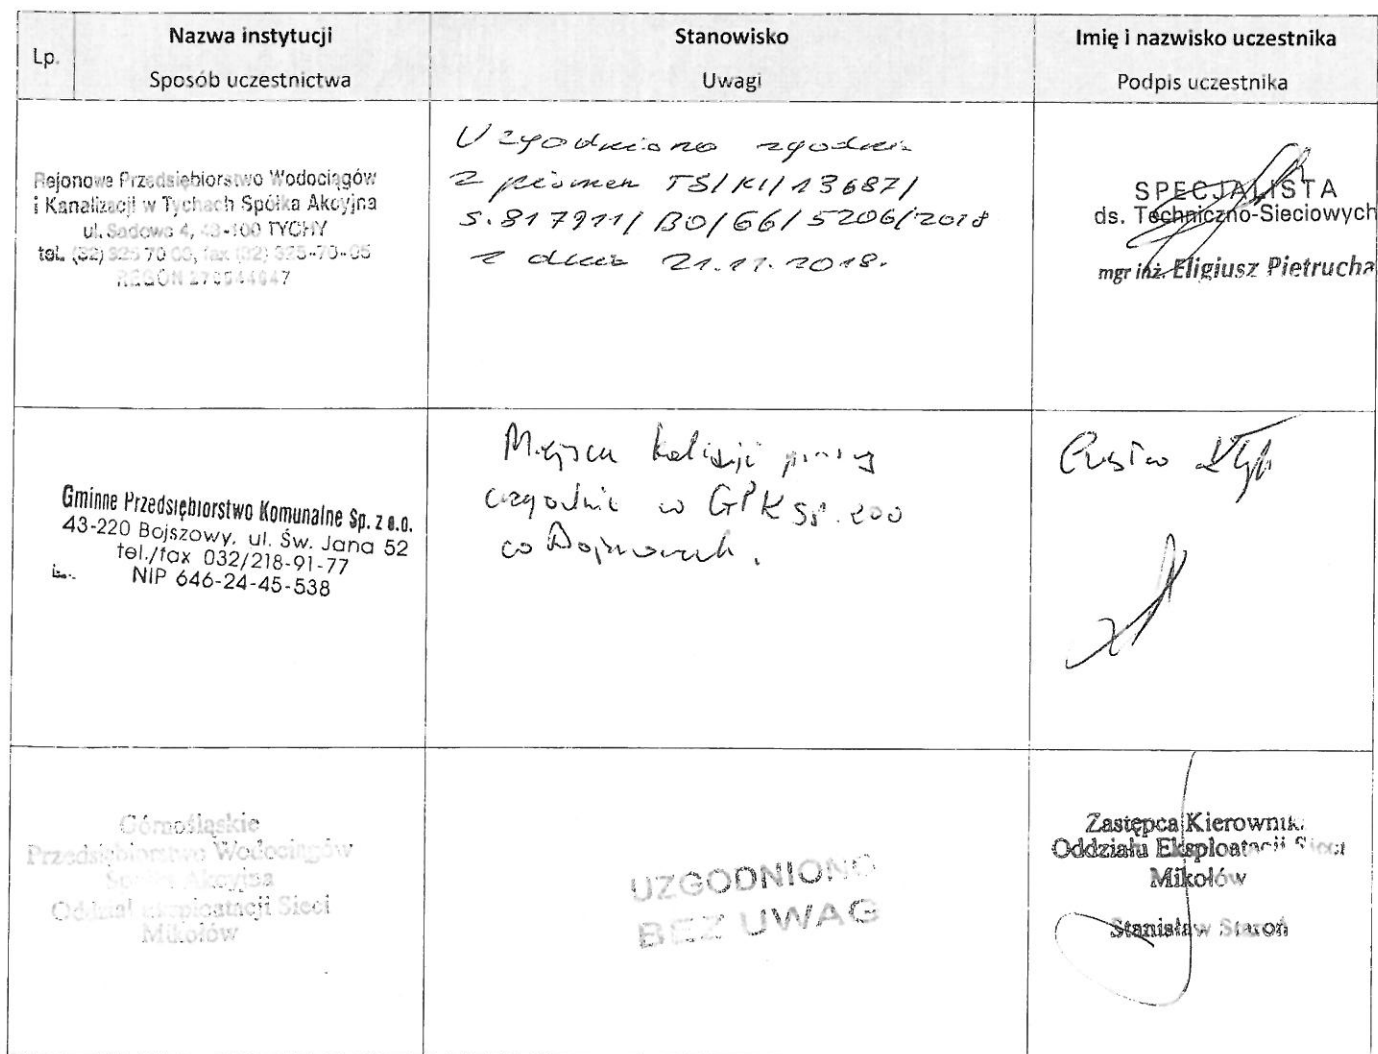 Lp.
Nazwa instytucji
Sposób uczestnictwa
Stanowisko
Uwagi
Imię i nazwisko uczestnika
Podpis uczestnika
Rejonowe Przedsiębiorstwo Wodociągów
i Kanalizacji w Tychach Spółka Akcyjna
ul. Sadowa 4, 43-100 TYCHY
tel. (32) 325 70 00, fax (32) 325-70-05
REGON
Uzgodniono zgodnie
z pismem TS/KI/13687/
S.817911/BO/66/5206/2018
z dnia 21.11.2018.
SPECJALISTA
ds. Techniczno-Sieciowych
mgr inż. Eligiusz Pietrucha
Gminne Przedsiębiorstwo Komunalne Sp. z o.o.
43-220 Bojszowy, ul. Św. Jana 52
tel./fax 032/218-91-77
NIP 646-24-45-538
Miejsca kolizji
uzgodnić w GPK Sp. zoo
w Bojszowach.
Górnośląskie
Przedsiębiorstwo Wodociągów
Spółka Akcyjna
Oddział Eksploatacji Sieci
Mikołów
UZGODNIONO
BEZ UWAG
Zastępca Kierownika
Oddziału Eksploatacji Sieci
Mikołów
Stanisław